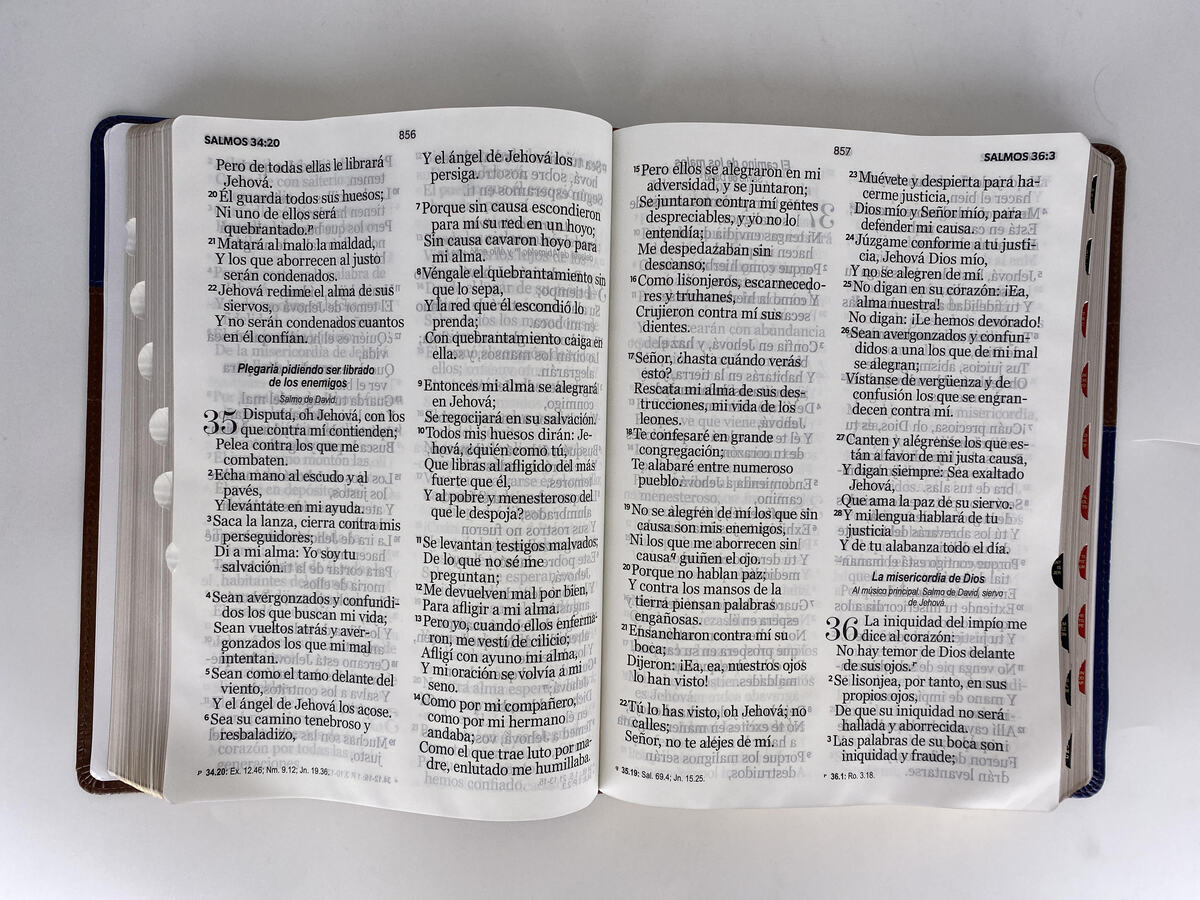 SALMOS 34:20
856
Pero de todas ellas le librará
Jehová.
20 Él guarda todos sus huesos;
Ni uno de ellos será
quebrantado.p
21 Matará al malo la maldad,
Y los que aborrecen al justo
serán condenados.
22 Jehová redime el alma de sus
siervos,
Y no serán condenados cuantos
en él confían.
Plegaria pidiendo ser librado
de los enemigos
Salmo de David.
35 Disputa, oh Jehová, con los
que contra mí contienden;
Pelea contra los que me
combaten.
2 Echa mano al escudo y al
pavés,
Y levántate en mi ayuda.
3 Saca la lanza, cierra contra mis
perseguidores;
Di a mi alma: Yo soy tu
salvación.
4 Sean avergonzados y confundi-
dos los que buscan mi vida;
Sean vueltos atrás y aver-
gonzados los que mi mal
intentan.
5 Sean como el tamo delante del
viento,
Y el ángel de Jehová los acose.
6 Sea su camino tenebroso y
resbaladizo,
Y el ángel de Jehová los
persiga.
7 Porque sin causa escondieron
para mí su red en un hoyo;
Sin causa cavaron hoyo para
mi alma.
8 Véngale el quebrantamiento sin
que lo sepa,
Y la red que él escondió lo
prenda;
Con quebrantamiento caiga en
ella.
9 Entonces mi alma se alegrará
en Jehová;
Se regocijará en su salvación.
10 Todos mis huesos dirán: Je-
hová, ¿quién como tú,
Que libras al afligido del más
fuerte que él,
Y al pobre y menesteroso del
que le despoja?
11 Se levantan testigos malvados;
De lo que no sé me
preguntan;
12 Me devuelven mal por bien,
Para afligir a mi alma.
13 Pero yo, cuando ellos enferma-
ron, me vestí de cilicio;
Afligí con ayuno mi alma,
Y mi oración se volvía a mi
seno.
14 Como por mi compañero,
como por mi hermano
andaba;
Como el que trae luto por ma-
dre, enlutado me humillaba.
P 34.20: Ex. 12.46; Nm. 9.12; Jn. 19.36.
857
SALMOS 36:3
15 Pero ellos se alegraron en mi
adversidad, y se juntaron;
Se juntaron contra mí gentes
despreciables, y yo no lo
entendía;
Me despedazaban sin
descanso;
16 Como lisonjeros, escarnecedo-
res y truhanes,
Crujieron contra mí sus
dientes.
17 Señor, ¿hasta cuándo verás
esto?
Rescata mi alma de sus des-
trucciones, mi vida de los
leones.
18 Te confesaré en grande
congregación;
Te alabaré entre numeroso
pueblo.
19 No se alegren de mí los que sin
causa son mis enemigos,
Ni los que me aborrecen sin
causaq guiñen el ojo.
20 Porque no hablan paz;
Y contra los mansos de la
tierra piensan palabras
engañosas.
21 Ensancharon contra mí su
boca;
Dijeron: ¡Ea, ea, nuestros ojos
lo han visto!
22 Tú lo has visto, oh Jehová; no
calles;
Señor, no te alejes de mí.
q 35.19: Sal. 69.4; Jn. 15.25.
23 Muévete y despierta para ha-
cerme justicia,
Dios mío y Señor mío, para
defender mi causa.
24 Júzgame conforme a tu justi-
cia, Jehová Dios mío,
Y no se alegren de mí.
25 No digan en su corazón: ¡Ea,
alma nuestra!
No digan: ¡Le hemos devorado!
26 Sean avergonzados y confun-
didos a una los que de mi mal
se alegran;
Vístanse de vergüenza y de
confusión los que se engran-
decen contra mí.
27 Canten y alégrense los que es-
tán a favor de mi justa causa,
Y digan siempre: Sea exaltado
Jehová,
Que ama la paz de su siervo.
28 Y mi lengua hablará de tu
justicia
Y de tu alabanza todo el día.
La misericordia de Dios
Al músico principal. Salmo de David, siervo
de Jehová.
36 La iniquidad del impío me
dice al corazón:
No hay temor de Dios delante
de sus ojos.r
2 Se lisonjea, por tanto, en sus
propios ojos,
De que su iniquidad no será
hallada y aborrecida.
3 Las palabras de su boca son
iniquidad y fraude;
r 36.1: Ro. 3.18.